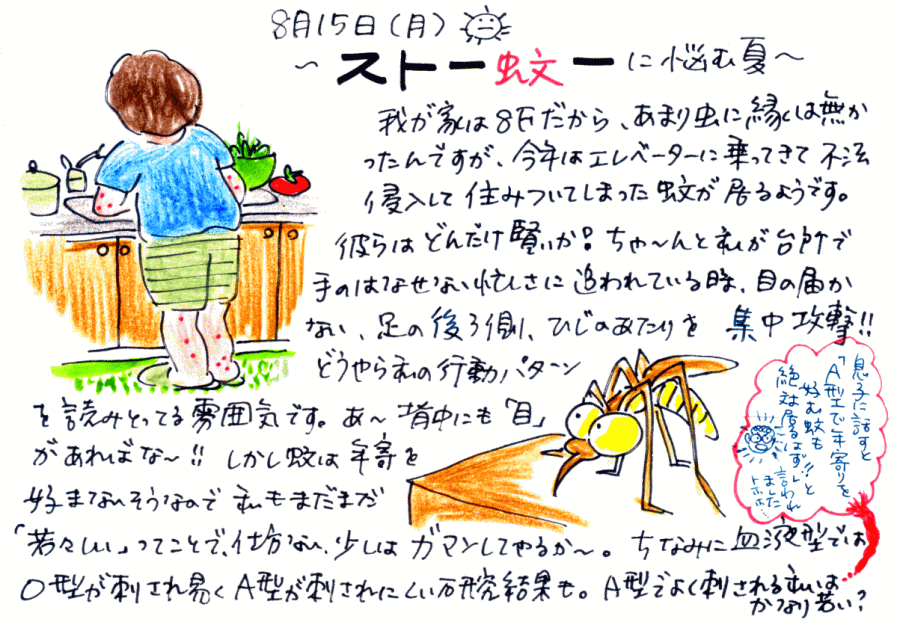 8月15日(月)
〜ストー蚊ーに悩む夏〜
我が家は8Fだから、あまり虫に縁は無か
ったんですが、今年はエレベーターに乗ってきて不法
侵入して住みついてしまった蚊が居るようです。
彼らはどんだけ賢いか!ちゃ〜んと私が台所で
手のはなせない忙しさに追われている時、目の届か
ない、足の後ろ側、ひじのあたりを集中攻撃!!
どうやら私の行動パターン
を読みとってる雰囲気です。あ〜背中にも「目」
があればな〜!!しかし蚊は年寄を
好まないそうなので私もまだまだ
「若々しい」ってことで、仕方ない、少しはガマンしてやるか〜。ちなみに血液型では
O型が刺され易くA型が刺されにくい研究結果も。A型でよく刺される私は
かなり若い?
息子に話すと
「A型で年寄りを
好む蚊も
絶対居るはず!!」と
言われ
ました
トホホ…